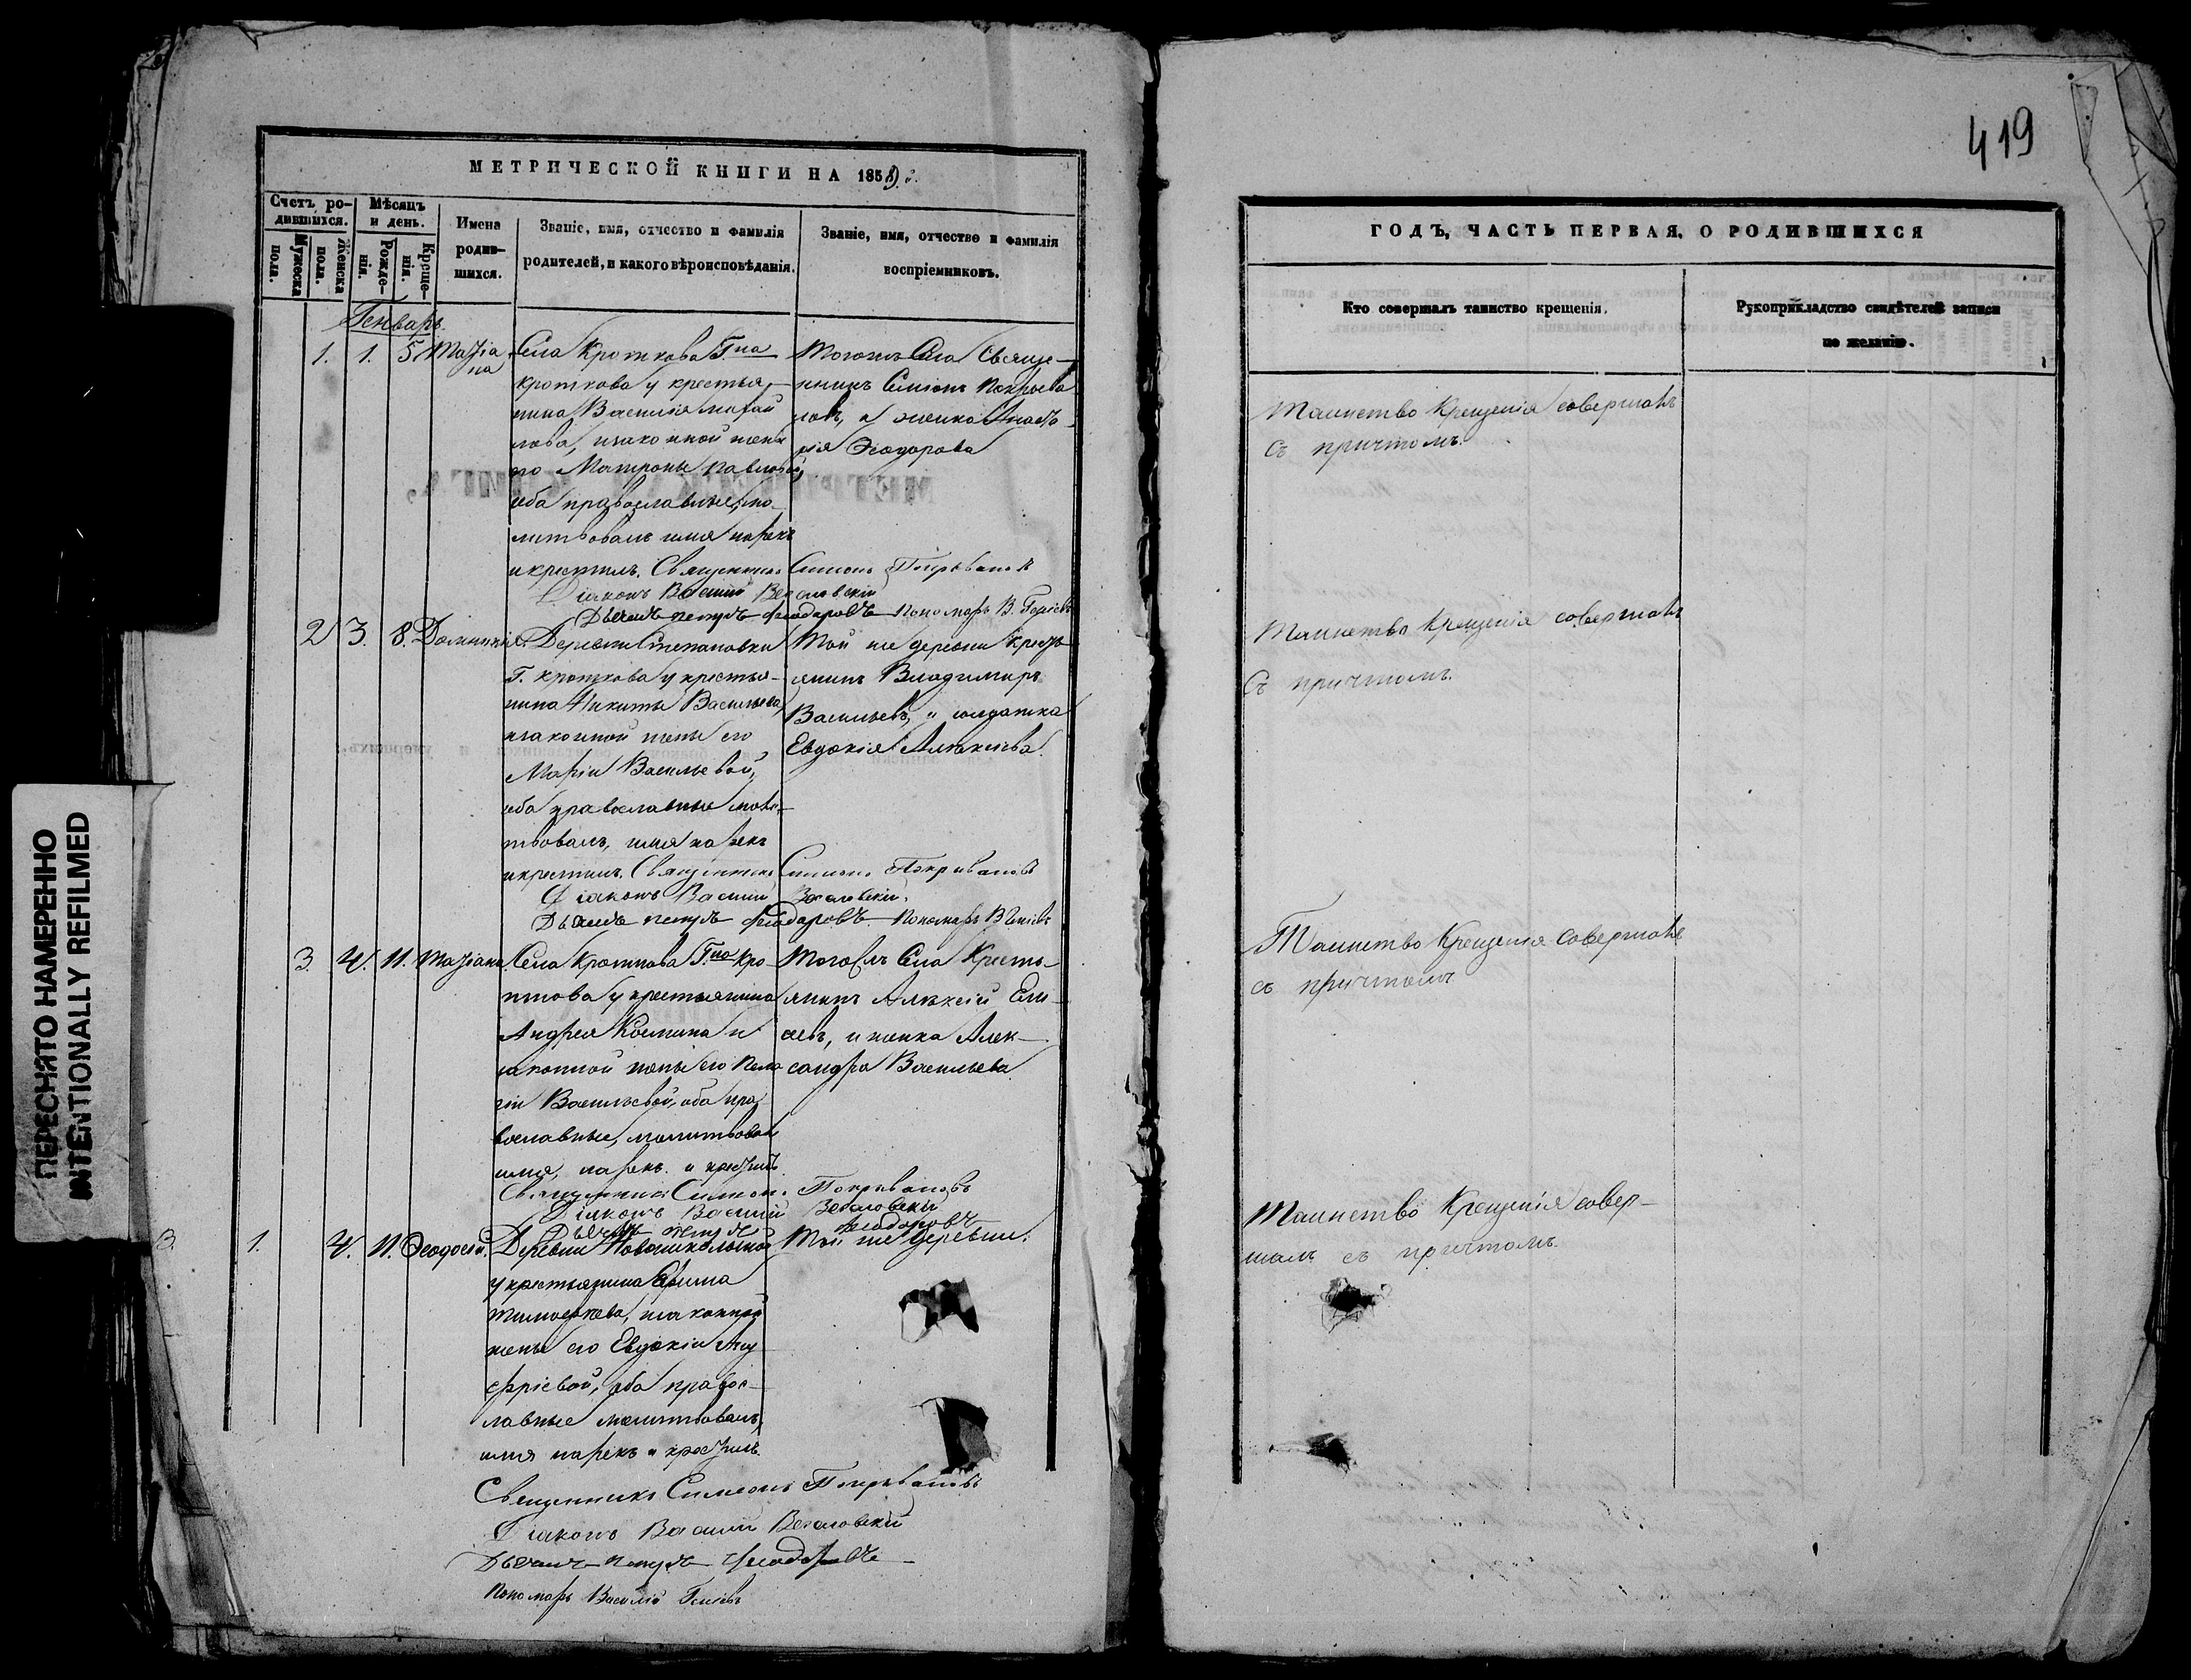 419
МЕТРИЧЕСКОЙ КНИГИ НА 1859 г.
Счетъ ро-
дившихся.
Мужеска
пола.
Женска
пола.
Мѣсяцъ
и день.
Рожде-
нія.
Креще-
нія.
Имена
родив-
шихся.
Званіе, имя, отчество и фамилія
родителей, и какого вѣроисповѣданія.
Званіе, имя, отчество и фамилія
воспріемниковъ.
ГОДЪ, ЧАСТЬ ПЕРВАЯ, О РОДИВШИХСЯ
Кто совершалъ таинство крещенія.
Рукоприкладство свидѣтелей записи
по желанію.
Генварь
1. 1. 5. Татіа
на
Села Кроткова Г.на
Кроткова у крестья-
нина Василія Михай
лова, и законной жены
его Матроны Павловой,
оба православные, мо-
литвовалъ имя нарекъ
и крестилъ. Священникъ Симеонъ Покровановъ
Діаконъ Василій
Дьячекъ Петръ Феодоровъ Пономарь В.
Тогожъ Села Священ-
никъ Симеонъ
и женка
Феодорова
Таинство Крещенія совершалъ
съ причтомъ.
2 3. 8. Домникія.
Деревни Степановки
Г. Кроткова у крестья-
нина Никиты Васильева,
и законной жены его
Маріи Васильевой,
оба православные моли-
твовалъ, имя нарекъ
и крестилъ. Священникъ Симеонъ Покровановъ
Діаконъ Василій
Дьячекъ Петръ Феодоровъ Пономарь В
Той же деревни Кресть-
янинъ Владимиръ
Васильевъ, и солдатка
Евдокія Алексіева.
Таинство Крещенія совершалъ
съ причтомъ.
3. 4. 11. Татіана.
Села Кроткова Г.на Кро-
ткова у крестьянина
Андрея Космина и
законной жены его Пела
гіи Васильевой, оба пра-
вославные, молитвовалъ
имя, нарекъ и крестилъ.
Священникъ Симеонъ Покровановъ
Діаконъ Василій
Дьячекъ Петръ Феодоровъ
Тогожъ Села Кресть-
янинъ Алексій Ели-
сѣевъ, и женка Алек-
сандра Васильева
Таинство Крещенія совершалъ
съ причтомъ
3. 1. 4. 11. Феодосій.
Деревни
у крестьянина Ефима
Тимофеева, и законной
жены его Евдокіи Ану
фріевой, оба правос-
лавные молитвовалъ,
имя нарекъ и крестилъ.
Той же деревни.
Священникъ Симеонъ Покровановъ
Діаконъ Василій
Дьячекъ Петръ Феодоровъ
Пономарь Василій
Таинство Крещенія совер-
шалъ съ причтомъ.
ПЕРЕСНЯТО НАМЕРЕННО
INTENTIONALLY REFILMED